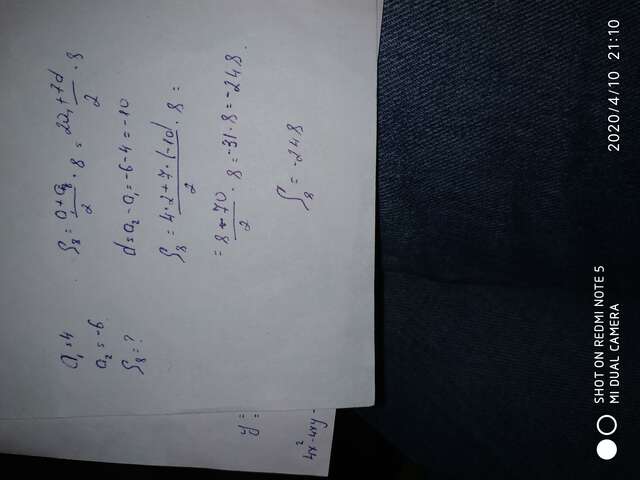 a₁=4
a₂=-6
S₈=?
S₈ = a+a₈/2 · 8 = 2a₁+7d/2 · 8
d=a₂-a₁=-6-4=-10
S₈ = 4·2+7·(-10)/2 · 8 =
= 8-70/2 · 8 = -31·8 = -248.
S₈ = -248
y =
=
4x²-4xy-
SHOT ON REDMI NOTE 5
MI DUAL CAMERA
2020/4/10 21:10